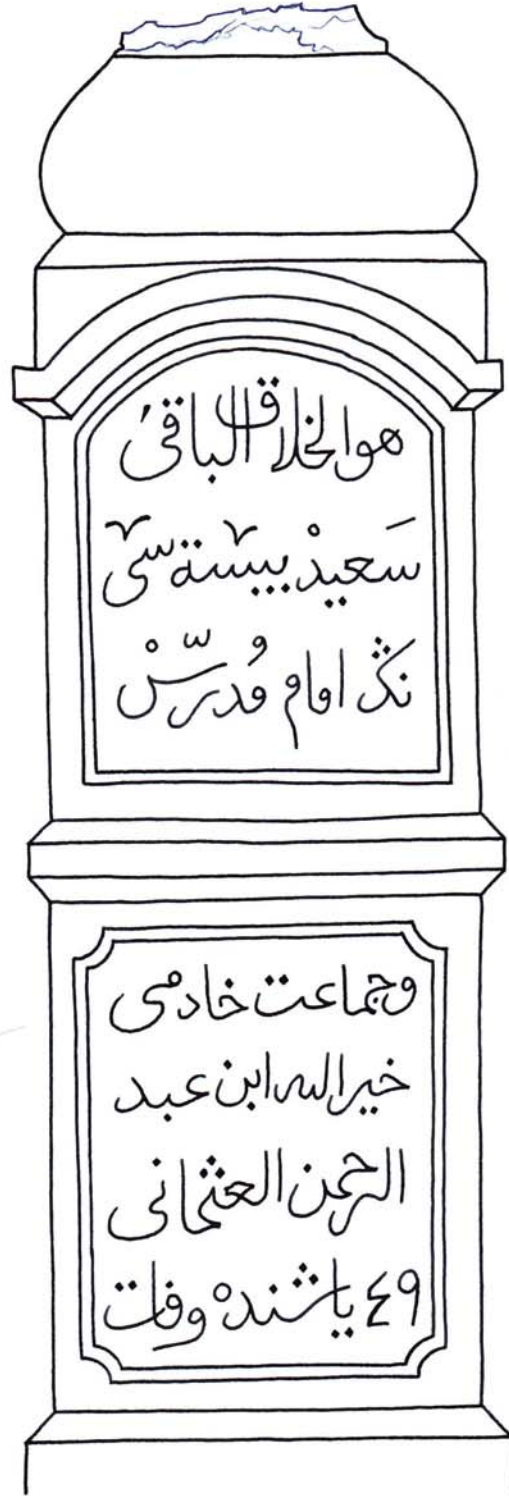 هوالخلاق الباقی
سَعیدْ بیسته‌سی
نڭ امام مُدرّسْ
وجماعت خادمی
خیرالله ابن عبد
الرحمن العثمانی
٤٩ یاشندە وفات